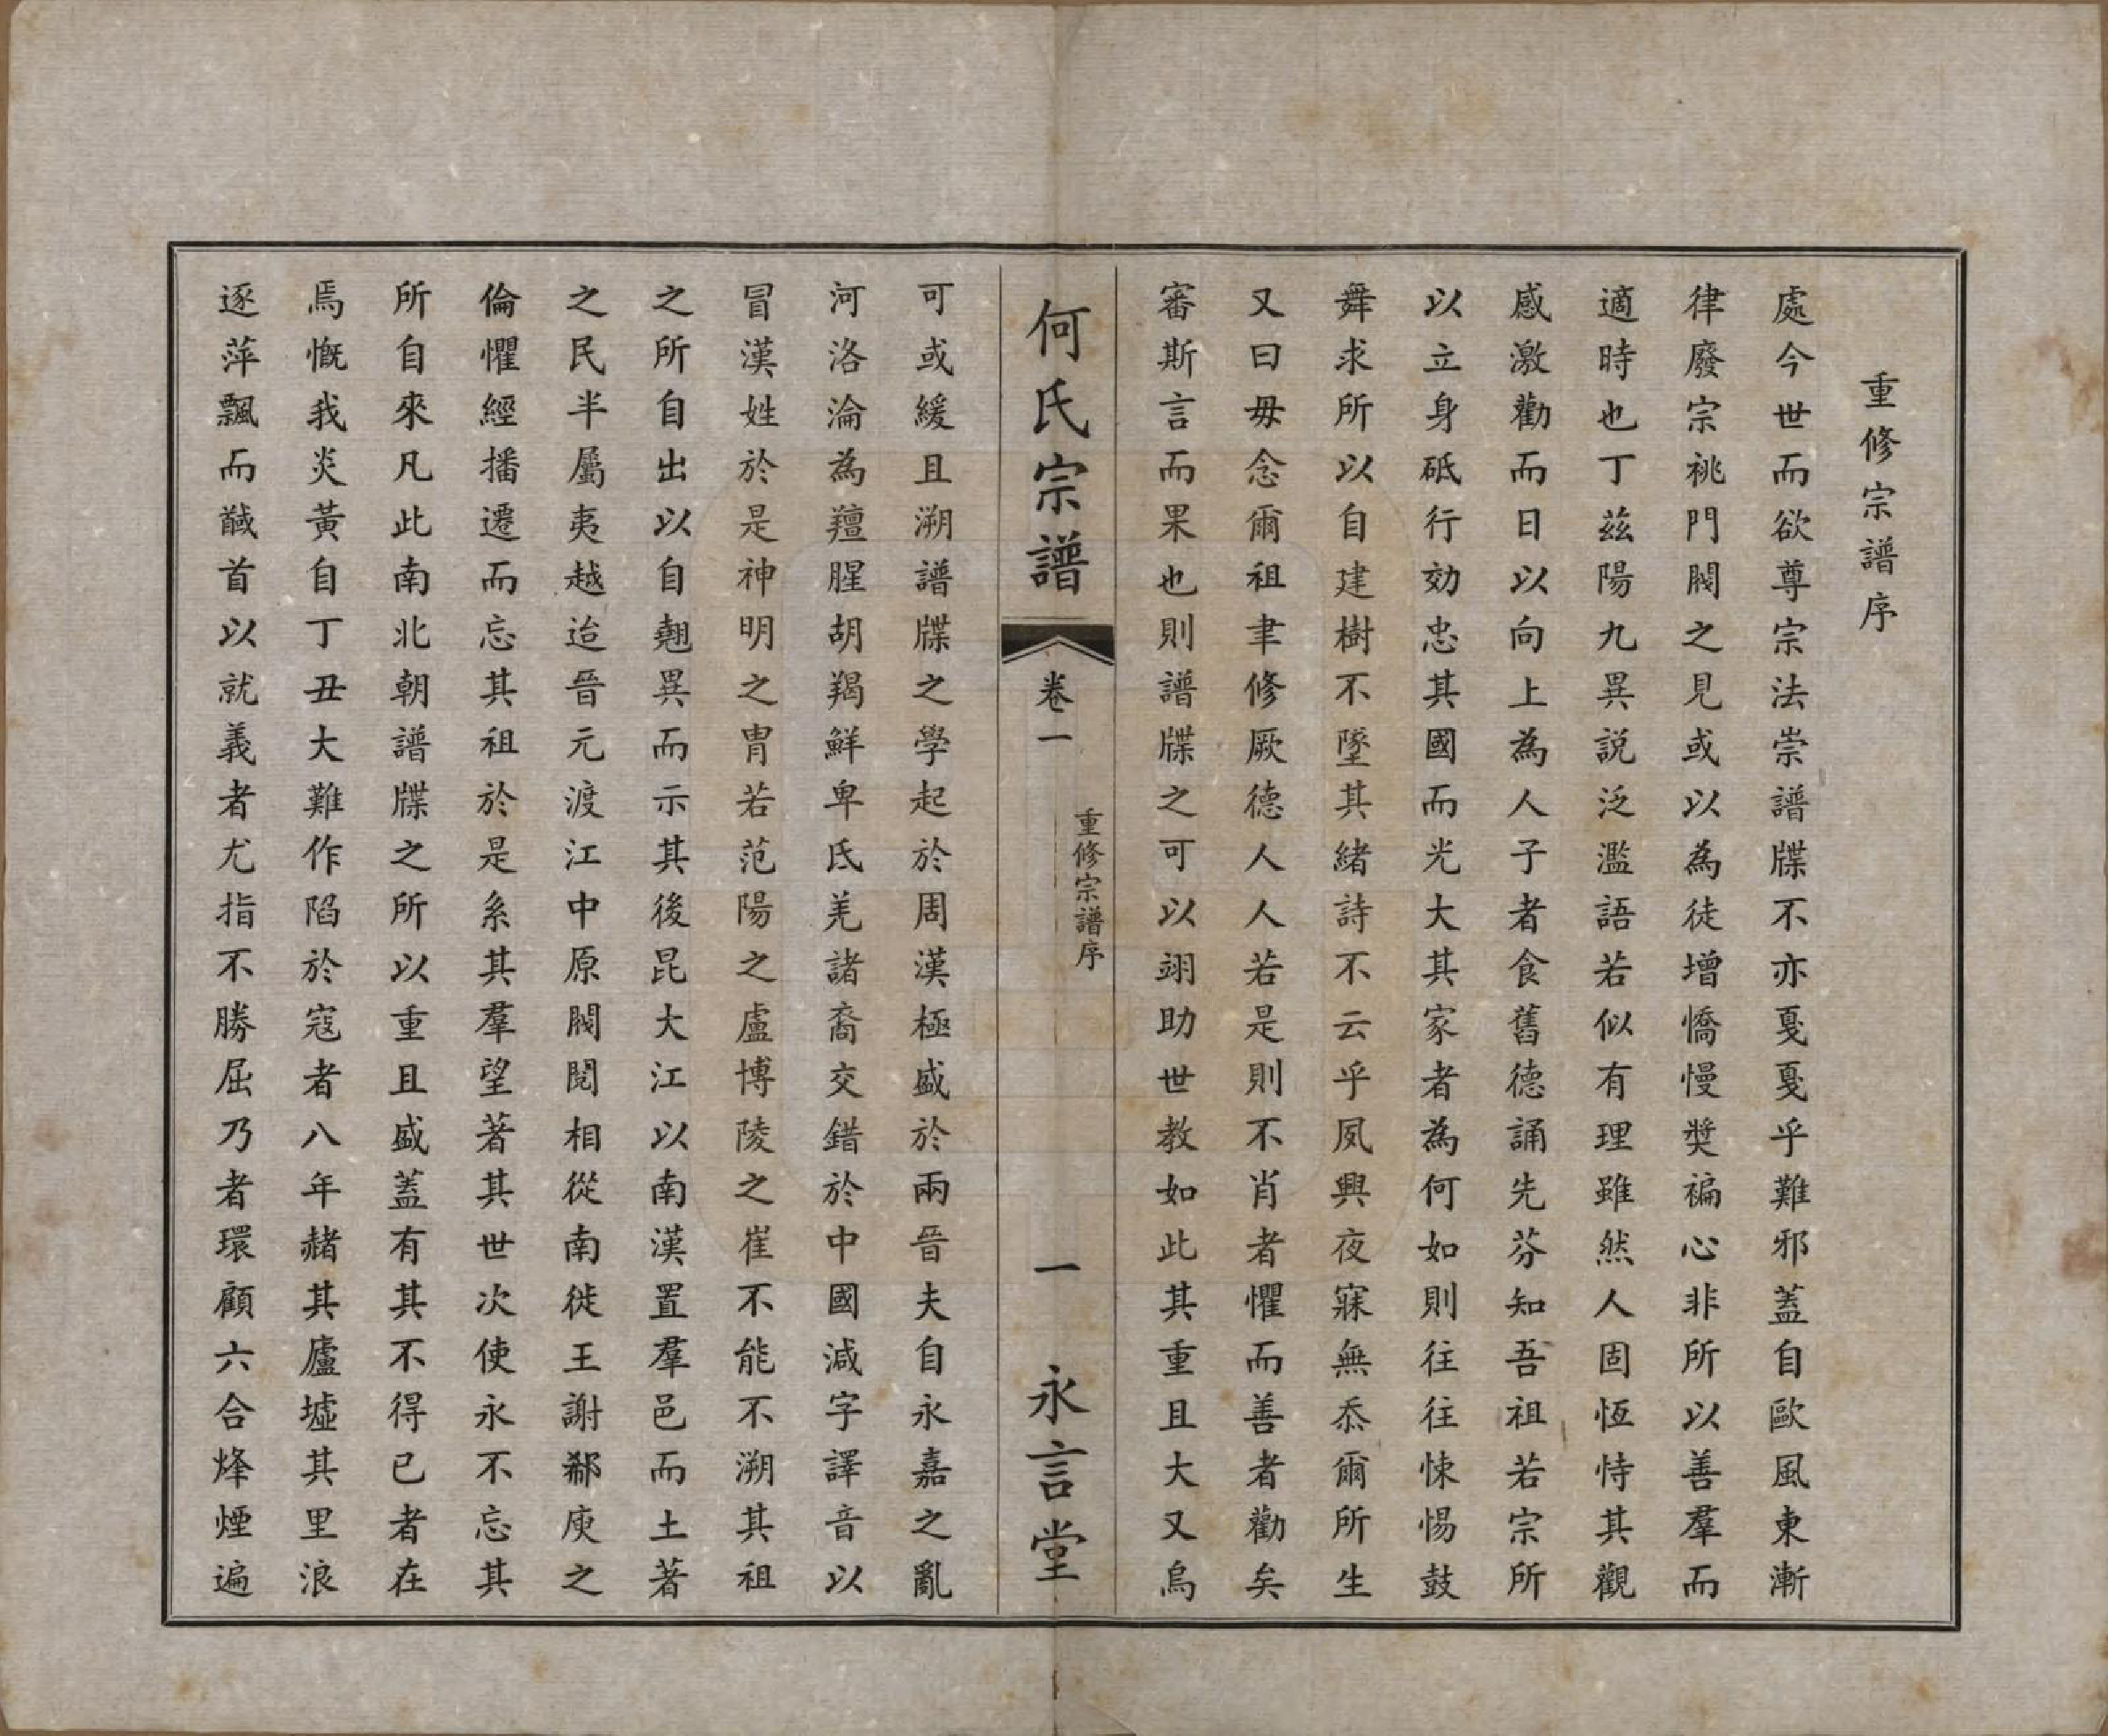 重修宗譜序
處今世而欲尊宗法崇譜牒不亦戛戛乎難邪蓋自歐風東漸
律廢宗祧門閥之見或以為徒增憍慢奬褊心非所以善羣而
適時也丁茲陽九異説泛濫語若似有理雖然人固恆恃其觀
感激勸而日以向上為人子者食舊德誦先芬知吾祖若宗所
以立身砥行効忠其國而光大其家者為何如則往往悚惕鼓
舞求所以自建樹不墜其緒詩不云乎夙興夜寐無忝爾所生
又曰毋念爾祖聿修厥德人人若是則不肖者懼而善者勸矣
審斯言而果也則譜牒之可以翊助世教如此其重且大又烏
何氏宗譜
卷一
重修宗譜序
一
永言堂
可或緩且溯譜牒之學起於周漢極盛於兩晉夫自永嘉之亂
河洛淪為羶腥胡羯鮮卑氐羌諸裔交錯於中國減字譯音以
冒漢姓於是神明之胄若范陽之盧博陵之崔不能不溯其祖
之所自出以自翹異而示其後昆大江以南漢置羣邑而土著
之民半屬夷越迨晉元渡江中原閥閱相從南徙王謝郗庾之
倫懼經播遷而忘其祖於是系其羣望著其世次使永不忘其
所自來凡此南北朝譜牒之所以重且盛蓋有其不得已者在
焉慨我炎黃自丁丑大難作陷於寇者八年赭其廬墟其里浪
逐萍飄而馘首以就義者尤指不勝屈乃者環顧六合烽煙遍